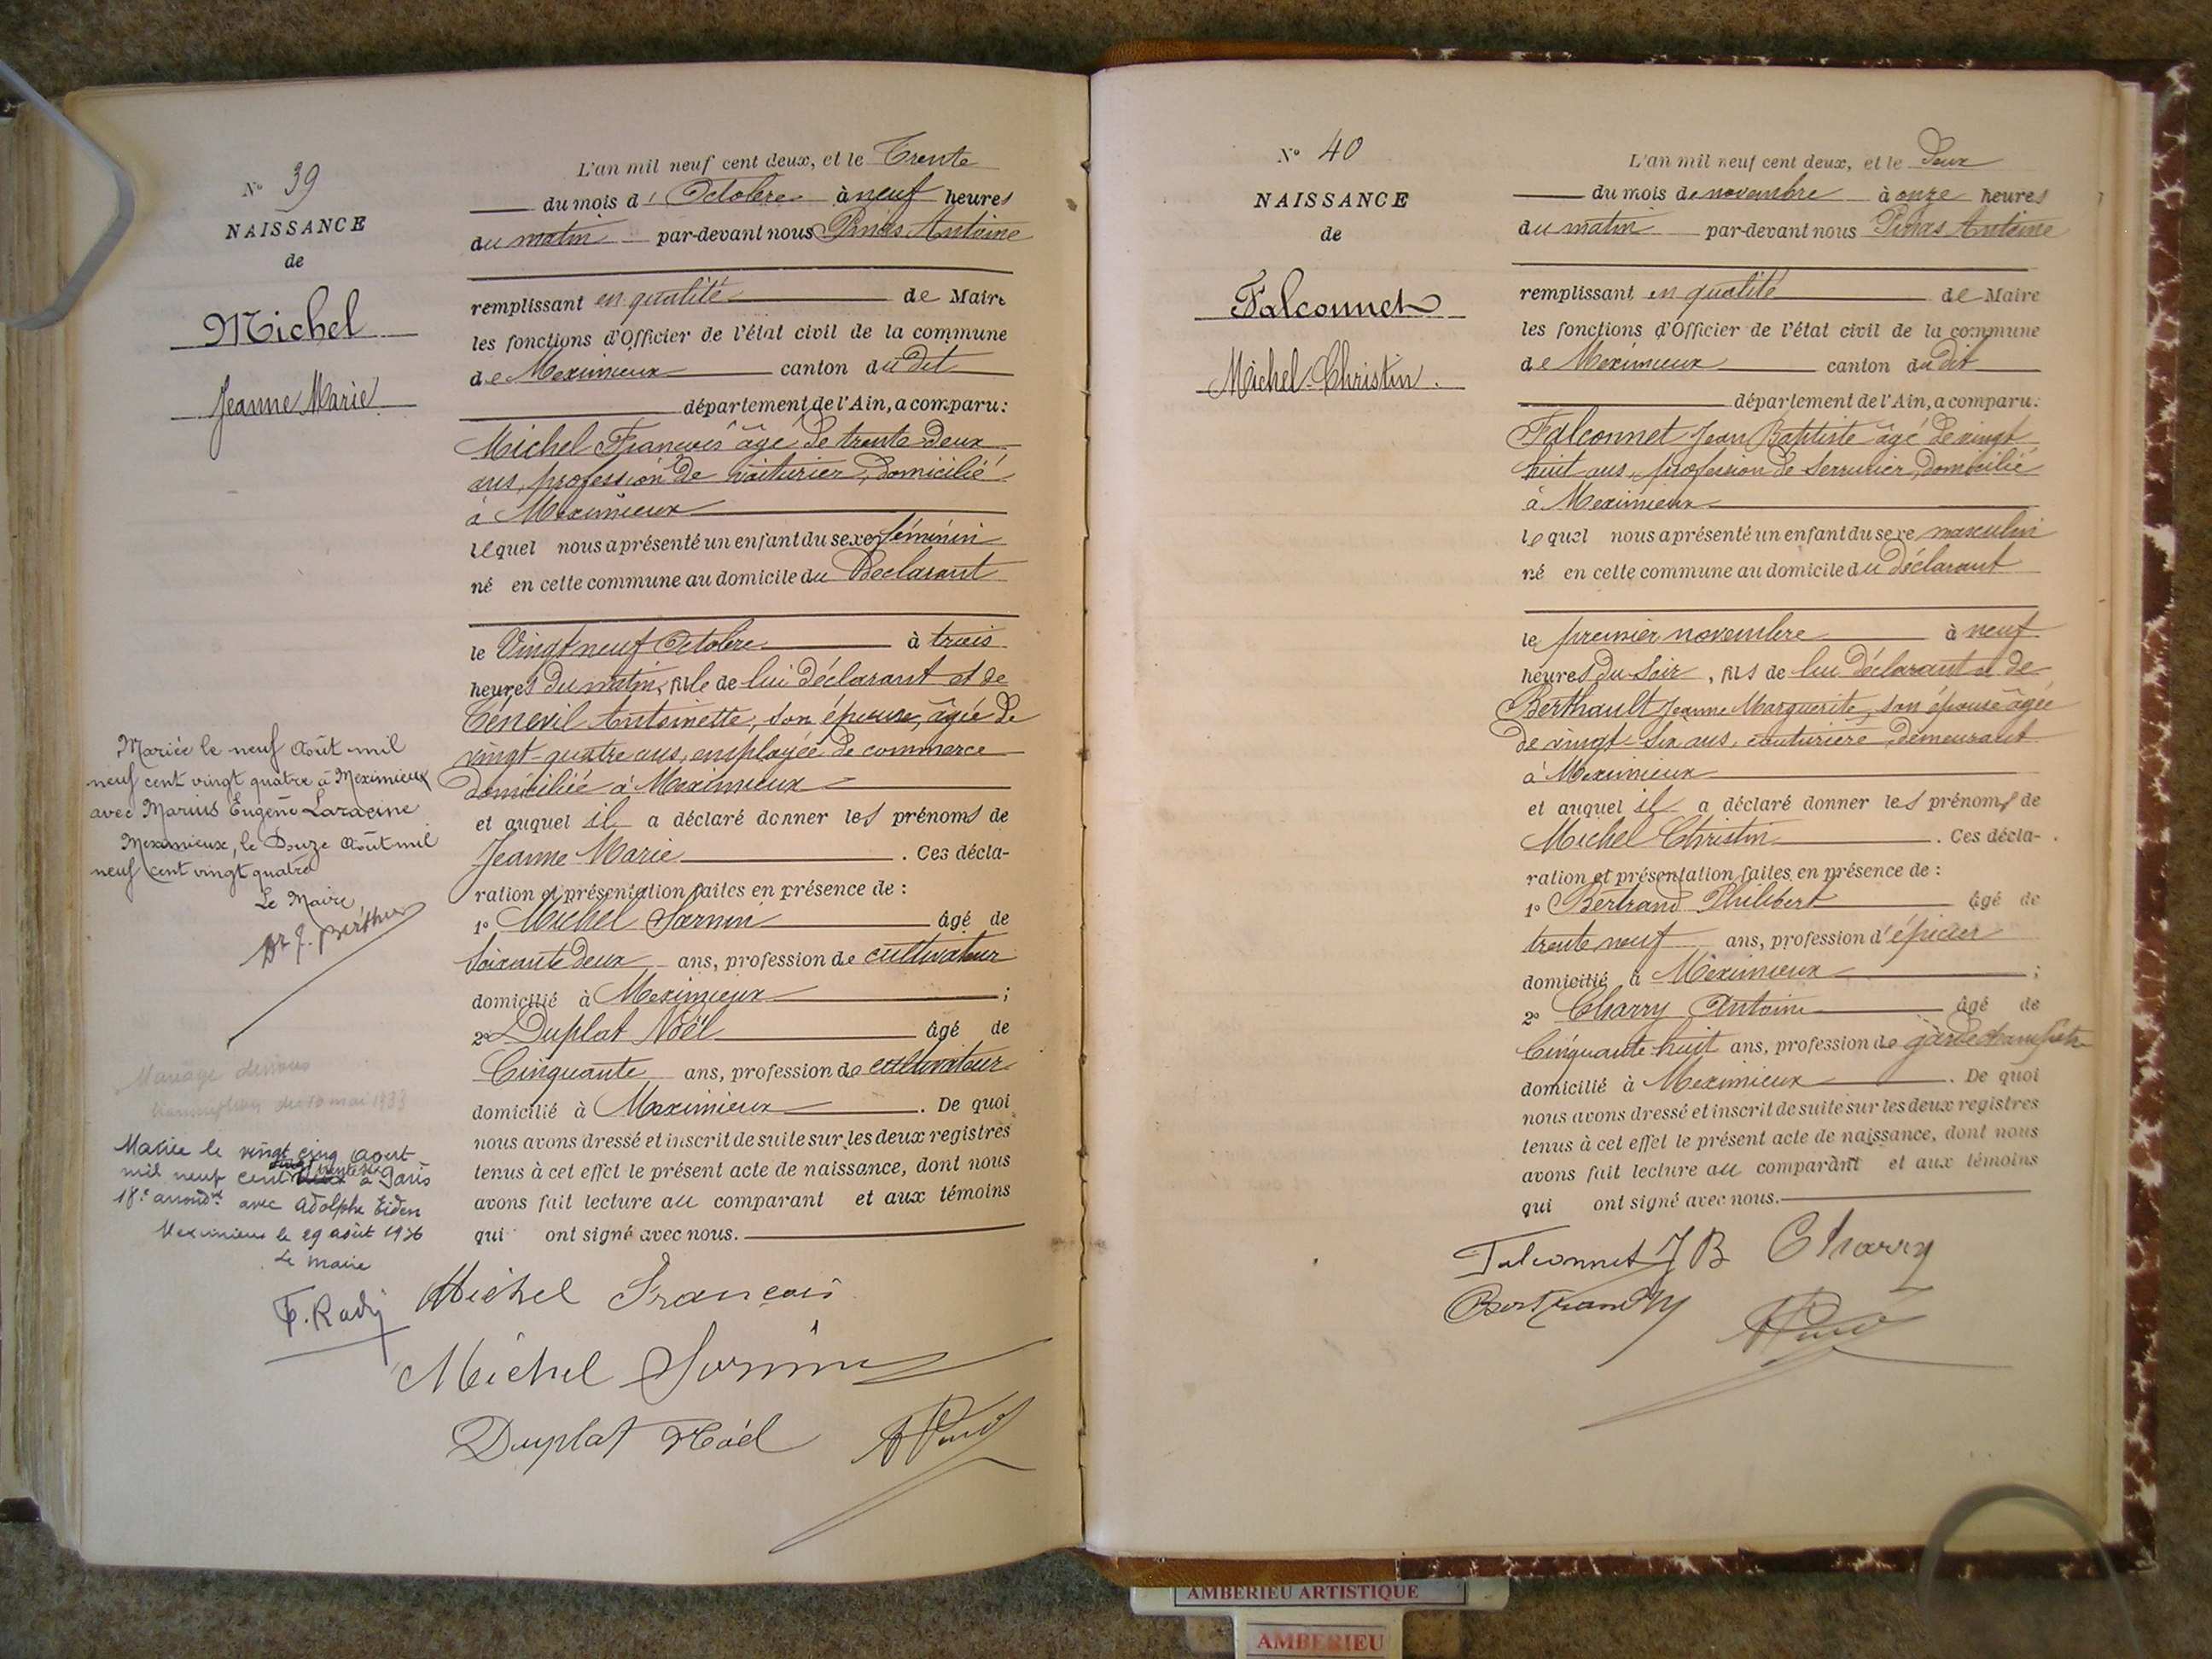 N° 39
NAISSANCE
de
Michel
Jeanne Marie
Mariée le neuf Août mil
neuf cent vingt quatre à Meximieux
avec Marius Eugène Laracine
Meximieux, le Douze Août mil
neuf cent vingt quatre
Le Maire
Dr J. Berthier
Mariage dissous
transcription du 10 mai 1933
Mariée le vingt cinq août
mil neuf cent trente six à Paris
18e arrondt avec Adolphe Eiden
Meximieux le 29 août 1936
Le maire
L'an mil neuf cent deux, et le Trente
du mois d'Octobre à neuf heures
du matin par-devant nous Antoine
remplissant en qualité de Maire
les fonctions d'Officier de l'état civil de la commune
de Meximieux canton du dit
département de l'Ain, a comparu:
Michel François âgé de trente deux
ans, profession de voiturier, domicilié
à Meximieux
lequel nous a présenté un enfant du sexe féminin
né en cette commune au domicile du Déclarant
le Vingt neuf Octobre à trois
heures du matin, fille de lui déclarant et de
Antoinette, son épouse, âgée de
vingt-quatre ans, employée de commerce
domiciliée à Meximieux
et auquel il a déclaré donner les prénoms de
Jeanne Marie . Ces décla-
ration et présentation faites en présence de :
1° Michel Sornin âgé de
soixante deux ans, profession de cultivateur
domicilié à Meximieux ;
2° Duplat Noël âgé de
Cinquante ans, profession de cultivateur
domicilié à Meximieux . De quoi
nous avons dressé et inscrit de suite sur les deux registres
tenus à cet effet le présent acte de naissance, dont nous
avons fait lecture au comparant et aux témoins
qui ont signé avec nous.
Michel François
Michel Sornin
Duplat Noël
N° 40
NAISSANCE
de
Falconnet
Michel Christin.
L'an mil neuf cent deux, et le Deux
du mois de novembre à onze heures
du matin par-devant nous Antoine
remplissant en qualité de Maire
les fonctions d'Officier de l'état civil de la commune
de Meximieux canton du dit
département de l'Ain, a comparu:
Falconnet Jean Baptiste âgé de vingt
huit ans, profession de Serrurier, domicilié
à Meximieux
lequel nous a présenté un enfant du sexe masculin
né en cette commune au domicile du déclarant
le premier novembre à neuf
heures du soir, fils de lui Déclarant et de
Berthault Jeanne Marguerite, son épouse âgée
de vingt-six ans, couturière demeurant
à Meximieux
et auquel il a déclaré donner les prénoms de
Michel Christin . Ces décla-
ration et présentation faites en présence de :
1° Bertrand Philibert âgé de
trente neuf ans, profession d'épicier
domicilié à Meximieux ;
2° Charry Antoine âgé de
Cinquante-huit ans, profession de garde champêtre
domicilié à Meximieux . De quoi
nous avons dressé et inscrit de suite sur les deux registres
tenus à cet effet le présent acte de naissance, dont nous
avons fait lecture au comparant et aux témoins
qui ont signé avec nous.
Falconnet J B Charry
AMBERIEU ARTISTIQUE
AMBERIEU